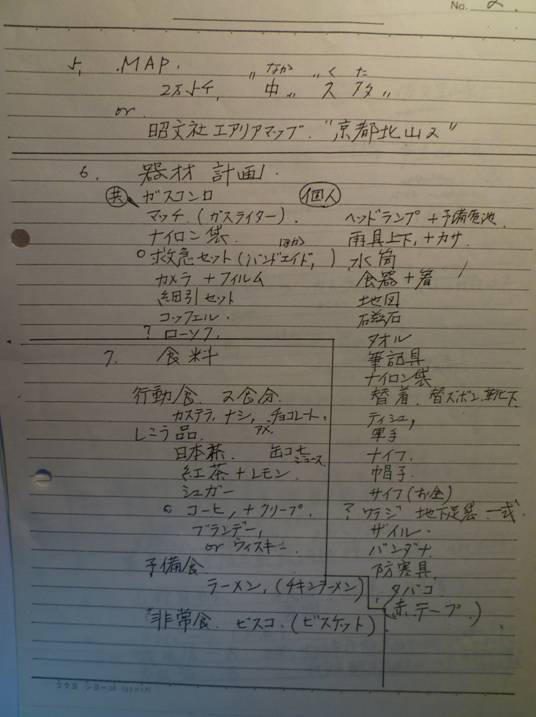 No. 2.
5, MAP.
なか くた
2万5千, "中" "久多"
or
昭文社エアリアマップ. "京都北山2"
6. 器材計画.
共 ガスコンロ
マッチ (ガスライター).
ナイロン袋.
ほか
○救急セット (バンドエイド, )
カメラ + フィルム
細引セット
コッフェル.
? ローソク.
個人
ヘッドランプ + 予備電池
雨具上下, + カサ
水筒
食器 + 箸
地図
磁石
タオル
筆記具
ナイロン袋
替着, 替ズボン, 靴下
ティシュ,
軍手
ナイフ
帽子
サイフ (お金)
? ワラジ 地下足袋 一式
ザイル.
バンダナ
防寒具,
タバコ
(赤テープ.)
7. 食料
行動食. 2食分.
カステラ, ナシ, チョコレート,
アメ.
し品.
日本茶. 缶コーヒー
ジュース
紅茶 + レモン
シュガー
○ コーヒ, + クリープ.
ブランデー,
or ウィスキー.
予備食
ラーメン, (チキンラーメン)
非常食. ビスコ. (ビスケット)